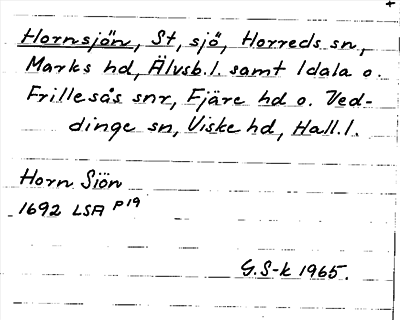 Hornsjön, St, sjö, Horreds sn,
Marks hd, Älvsb.l. samt Idala o.
Frillesås snr, Fjäre hd o. Ved-
dinge sn, Viske hd, Hall.l.
Horn Siön
1692 LSA P19
G.S-k 1965.